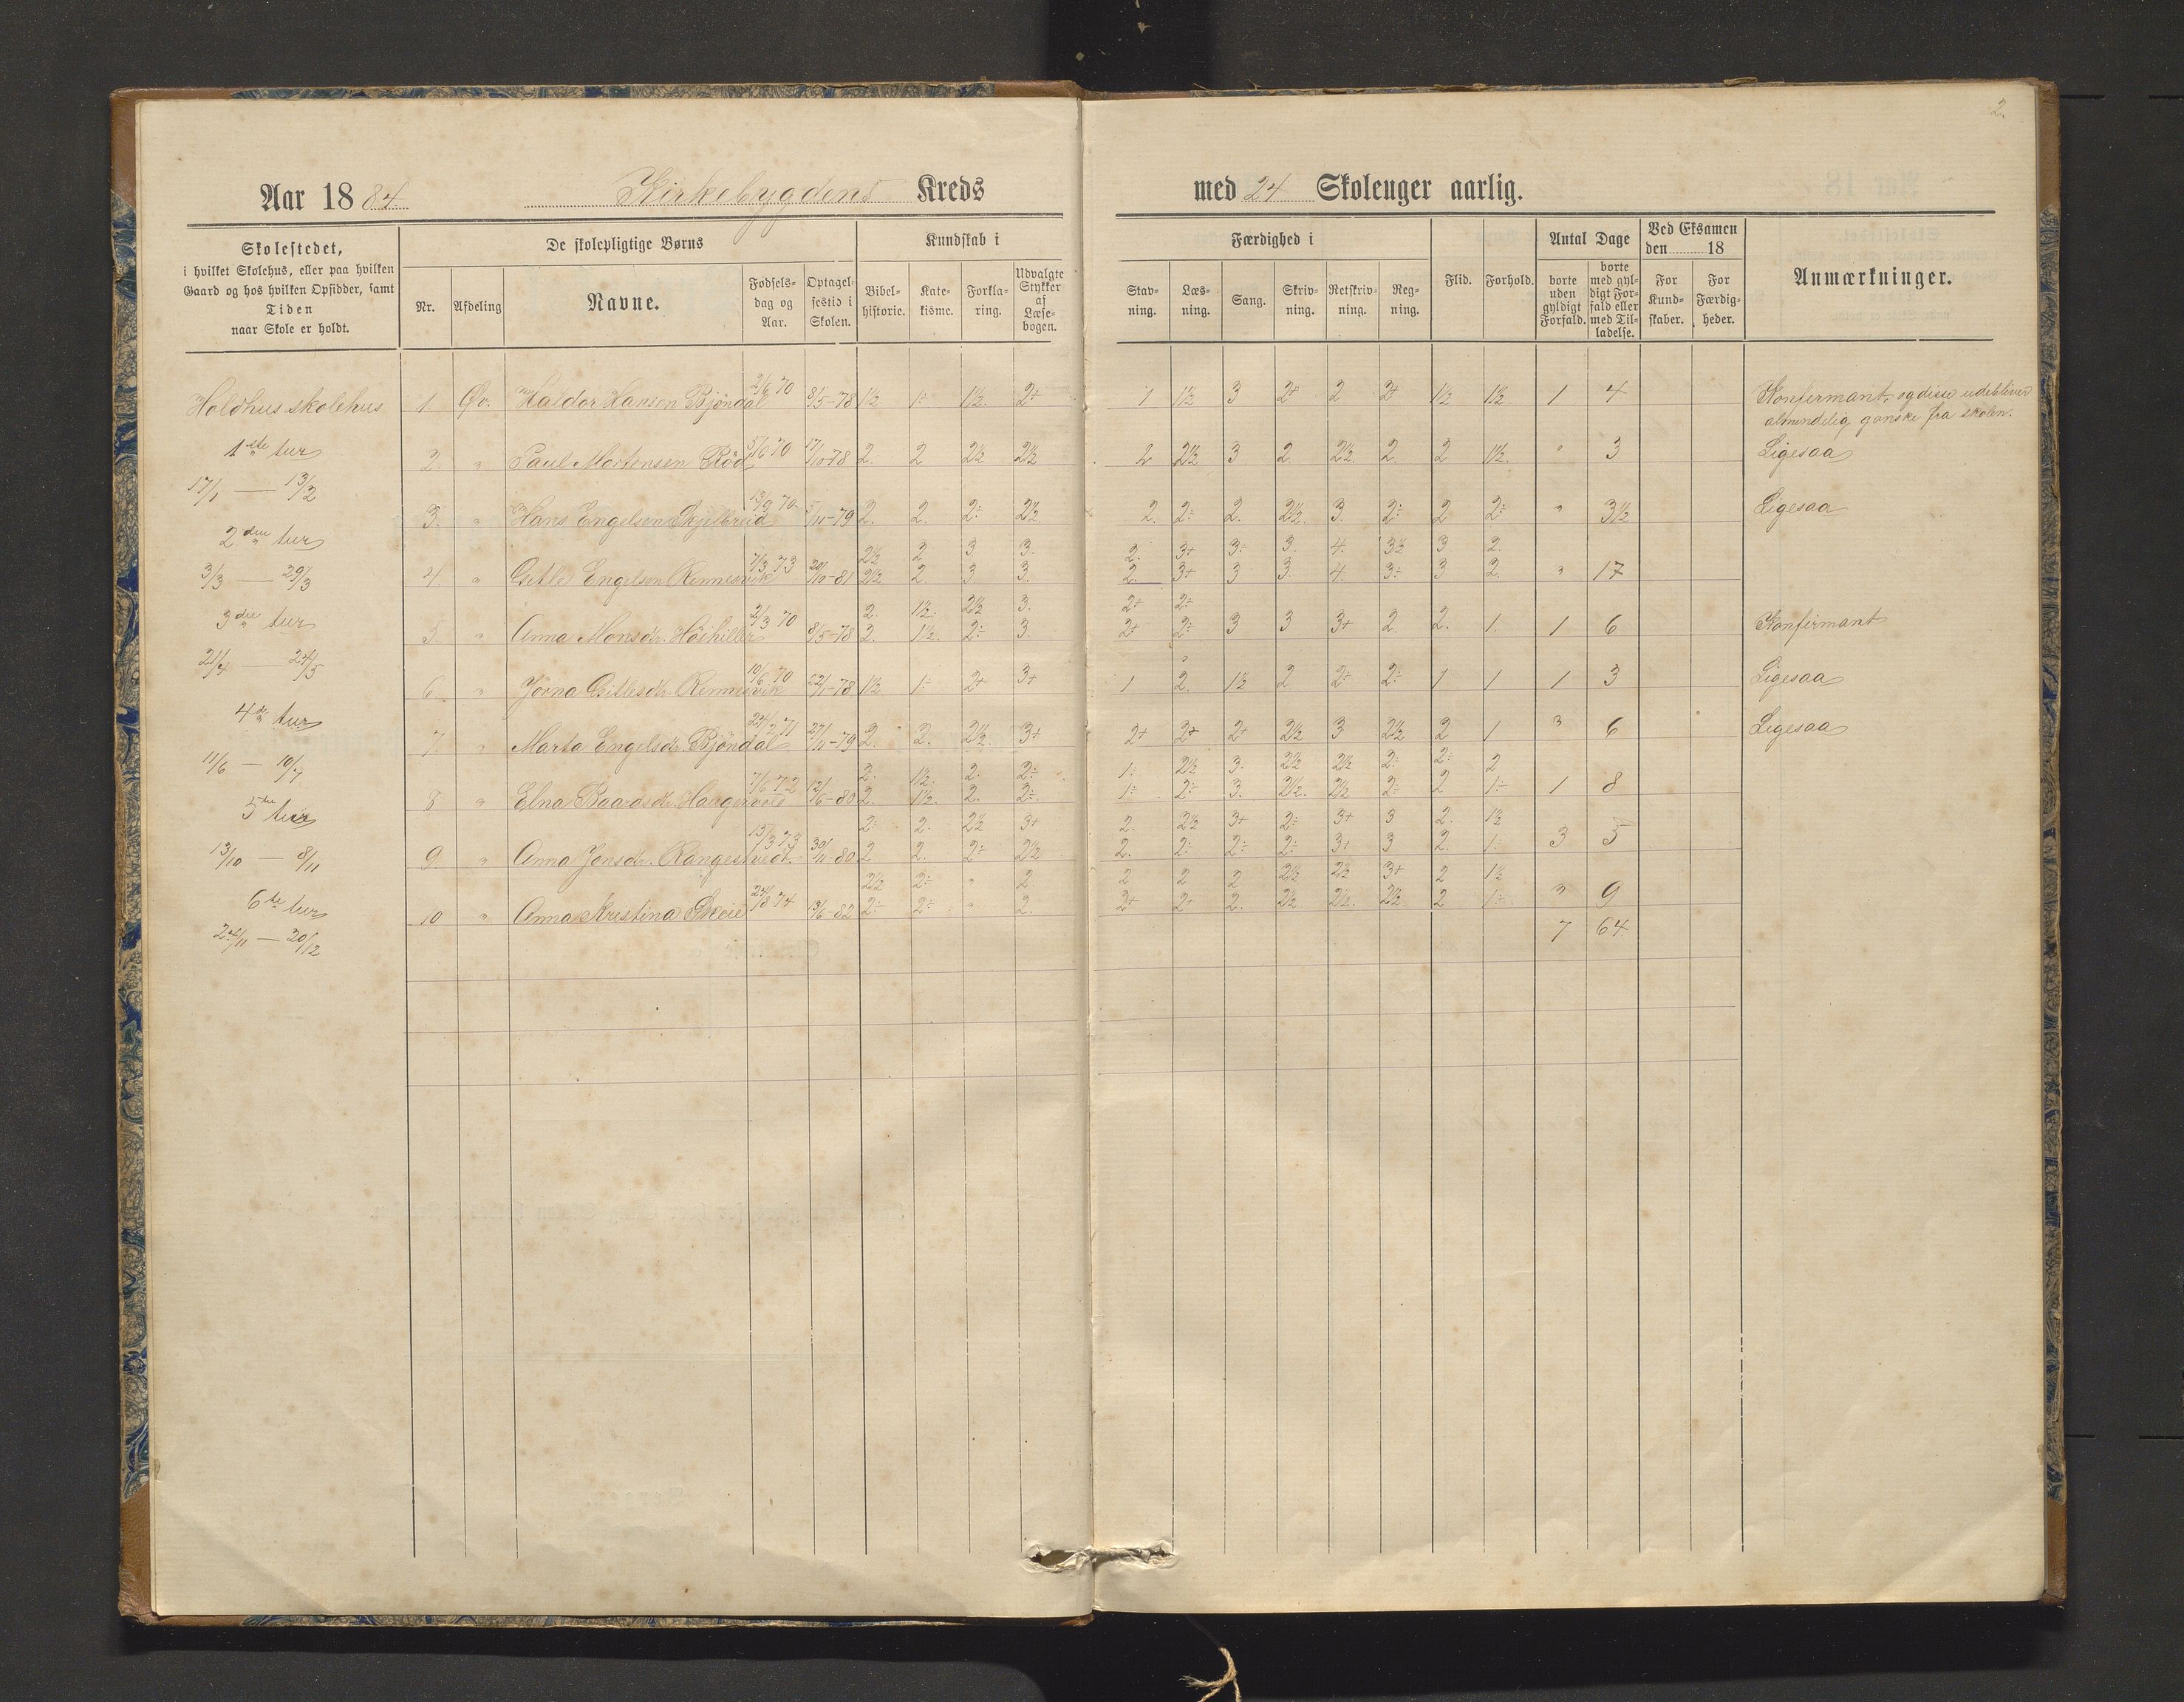 2.
Aar 1884 Kirkebygdens Kreds med 24 Skolenger aarlig.
Skolestedet,
i hvilket Skolehus, eller paa hvilken
Gaard og hos hvilken Opsidder, samt
Tiden
naar Skole er holdt.
De skolepligtige Børns
Nr. Afdeling Navne. Fødsels-dag og Aar. Optagel-sestid i Skolen.
Kundskab i
Bibel-historie. Kate-kisme. Forkla-ring. Udvalgte Stykker af Læse-bogen.
Færdighed i
Stav-ning. Læs-ning. Sang. Skriv-ning. Retskriv-ning. Reg-ning.
Flid. Forhold.
Antal Dage
borte uden gyldigt Forfald. borte med gyl-digt For-fald eller med Til-ladelse.
Ved Eksamen den 18
For Kund-skaber. For Færdig-heder.
Anmærkninger.
Holdhus skolehus
1ste tur
17/1 — 13/2
2den tur
3/3 — 29/3
3die tur
21/4 — 24/5
4de tur
11/6 — 10/7
5te tur
13/10 — 8/11
6te tur
24/11 — 20/12
1. Øv. Haldor Hansen Bjöndal 2/6 70 8/5-78 1½ 1÷ 1½. 2÷ 1 1½ 3 2+ 2 2+ 1½ 1½ 1 4 Konfirmant, og disse udebliver
almindelig ganske fra skolen.
2. " Paul Mortensen Röd 5/6 70 17/10-78 2. 2 2½ 2½ 2 2½ 3 2. 2½. 2. 2 1½. " 3 Ligesaa
3. " Hans Engelsen Skjelbreid 13/9 70 5/11-79 2. 2. 2÷ 2½ 2. 2÷ 2. 2½. 3. 2÷ 2 2÷ " 3½ Ligesaa
2½ 2 3 3. 2. 3+ 3÷ 3. 4. 3½ 3 2.
4. " Engelsen Rennesvik 7/3 73 20/10-81 2½ 2. 3 3. 2. 3+ 3 3. 4. 3÷ 3 2. " 17
2. 1½. 2½ 3. 2+ 2÷
5. " Anna Monsdr. 2/3 70 8/5-78 2. 1½. 2÷ 3. 2+ 2÷ 3 3 3+ 2. 2. 1. 1 6 Konfirmant
6. " Jorna Rennesvik 10/6 70 22/11-78 1½ 1÷ 2+ 3+ 1 2. 1½ 2 2÷ 2÷ 1 1 1 3 Ligesaa
7. " Marta Engelsdr. Bjöndal 24/2 71 27/11-79 2. 2. 2½. 3+ 2+ 2+ 2+ 2½ 3 2½ 2 1 " 6 Ligesaa
2. 1½. 2. 2÷ 1÷ 2½ 3. 2½ 2½ 2÷ 2÷ 2
8 " Elna Baardsdr. 7/6 72 12/6-80 2. 1½. 2. 2÷ 1÷ 2÷ 3. 2½. 2½ 2÷ 2 1÷ 1 8
2÷ 2. 2½ 3+ 2. 2½ 3+ 2÷ 3+ 3 2. 1½
9. " Anna Jonsdr. Rangestvedt. 15/3 73 30/11-80 2 2. 2÷ 2½ 2. 2÷ 2÷ 2÷ 3+ 3 2. 1÷ 3 5
2½ 2÷ " 2 2 2 2 2½ 2½ 3+ 2 1½
10 " Anna Kristina Skeie 24/8 74 13/6-82 2÷ 2÷ " 2. 3+ 2+ 2. 2½ 2½. 2½ 2 1÷ " 9
7 64